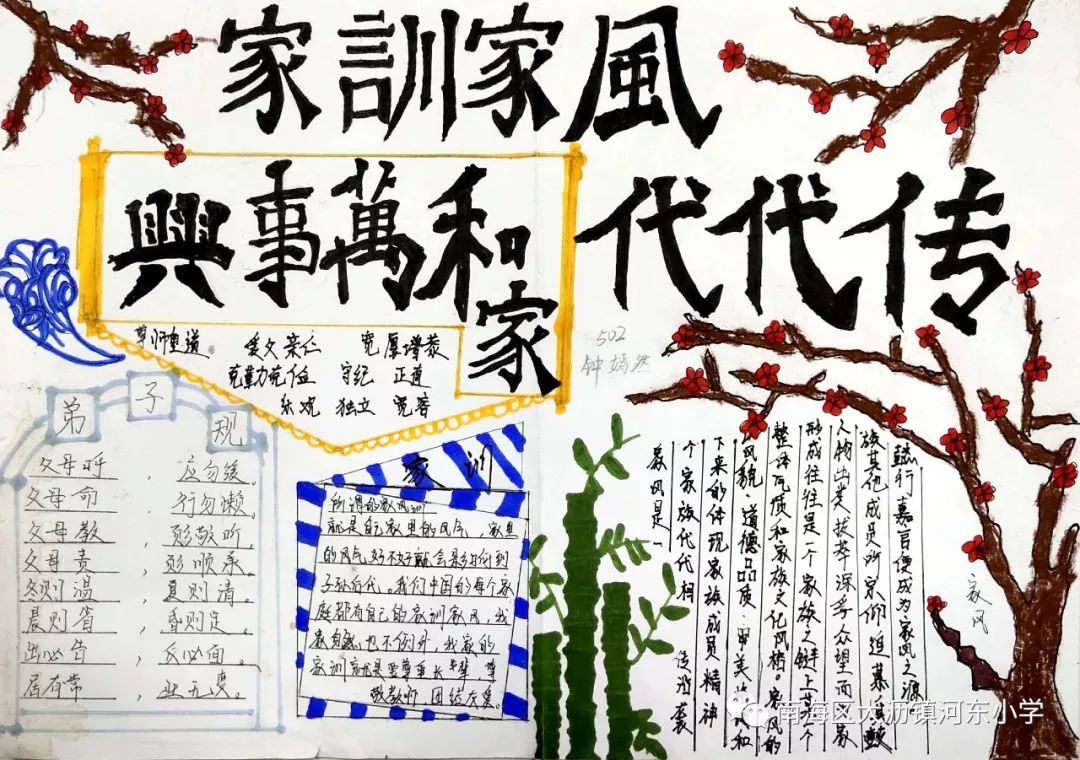 家訓家風
代代传
興事萬和家
尊师重道 爱父亲仁 宽厚增恭
克勤克俭 守纪 正道
乐观 独立 宽容
502
钟嫣然
弟子规
父母呼,应勿缓。
父母命,行勿懒。
父母教,敬听。
父母责,顺承。
冬则温,夏则清。
晨则省,昏则定。
出必告,反必面。
居有常,业无变。
家训
所谓的家风
就是自家里的风气,家里
的风气好不好就会影响到
子孙后代。我们中国的每个家
庭都有自己的家训家风,我
家也不例外,我家的
家训就是要尊重长辈 尊
敬教师 团结友爱。
家风
家风是
个家族代代相 传沿袭
下来的体现家族成员精神
风貌、道德品质、审美
整体气质和家族文化风格。家风的
形成往往是一个家族之链上某一个
人物出类拔萃深孚众望而为家
族其他成员所宗仰追慕
懿行嘉言便成为家风之源
南海区大沥镇河东小学